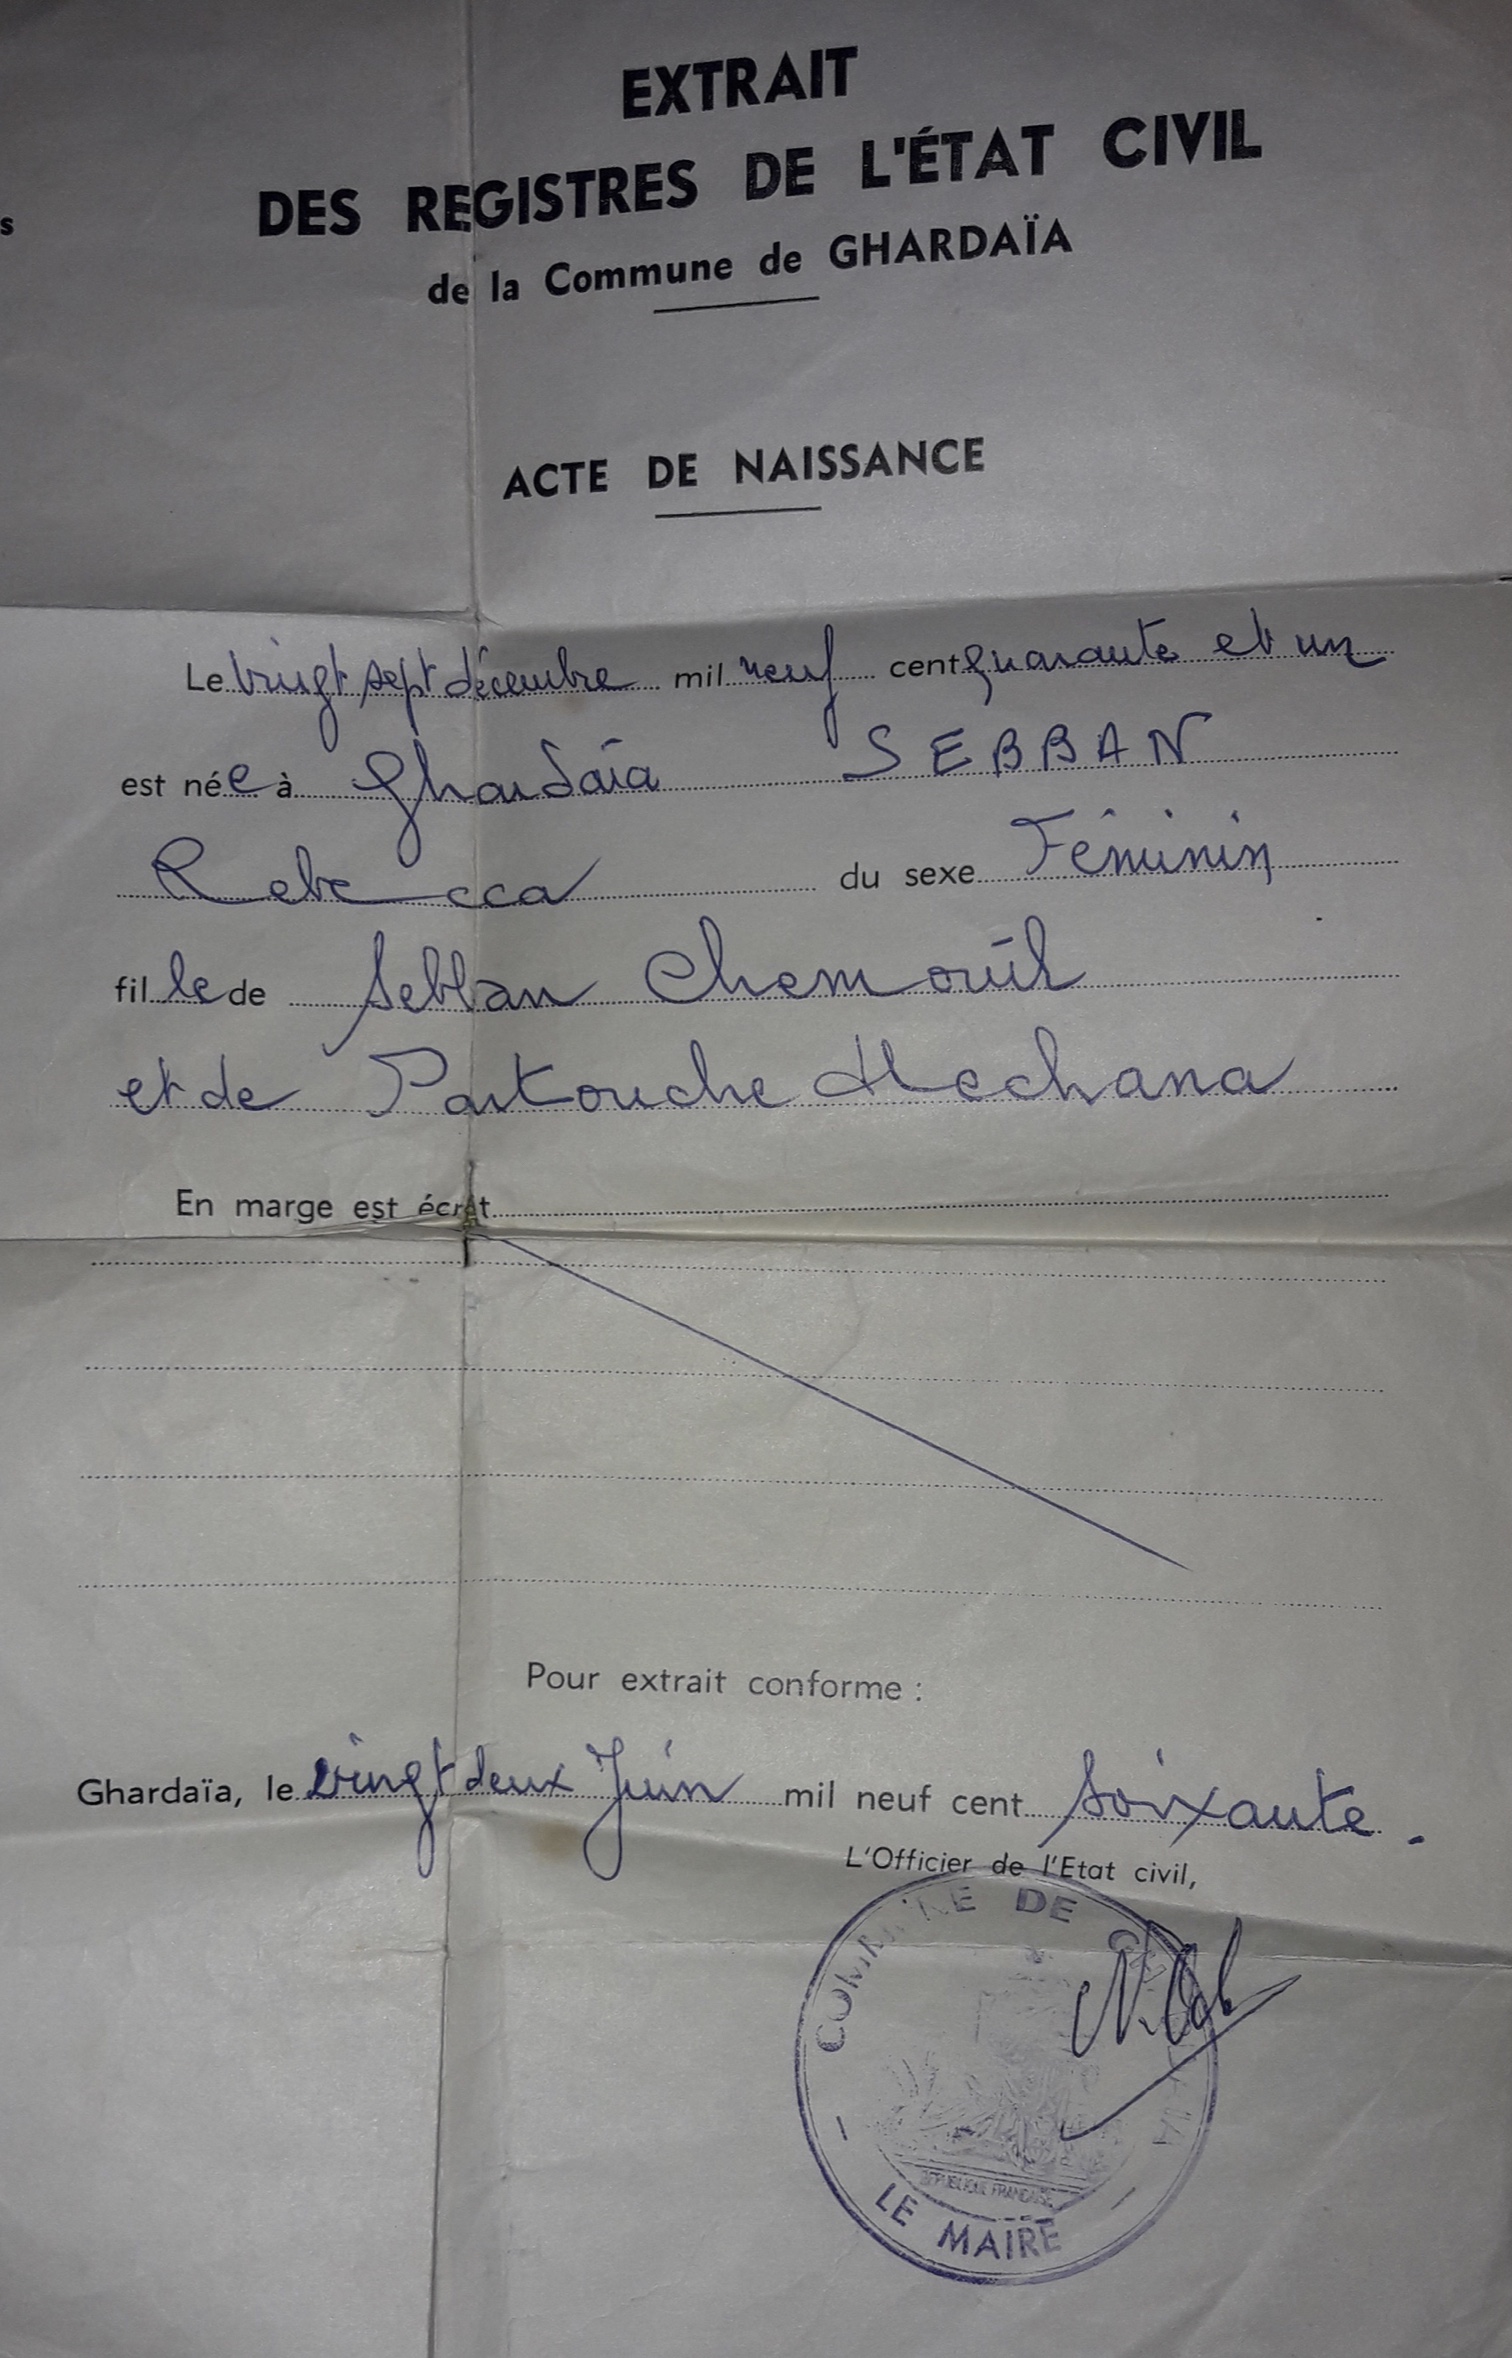 EXTRAIT
DES REGISTRES DE L'ÉTAT CIVIL
s
de la Commune de GHARDAÏA
ACTE DE NAISSANCE
Le vingt sept décembre mil neuf cent quarante et un
est née à Ghardaïa SEBBAN
Rebecca du sexe Féminin
fille de Sebban Chemouïl
et de Partouche Mechana
En marge est écrit
Pour extrait conforme :
Ghardaïa, le vingt deux Juin mil neuf cent soixante.
L'Officier de l'Etat civil,
COMMUNE DE GHARDAÏA
REPUBLIQUE FRANÇAISE
LE MAIRE